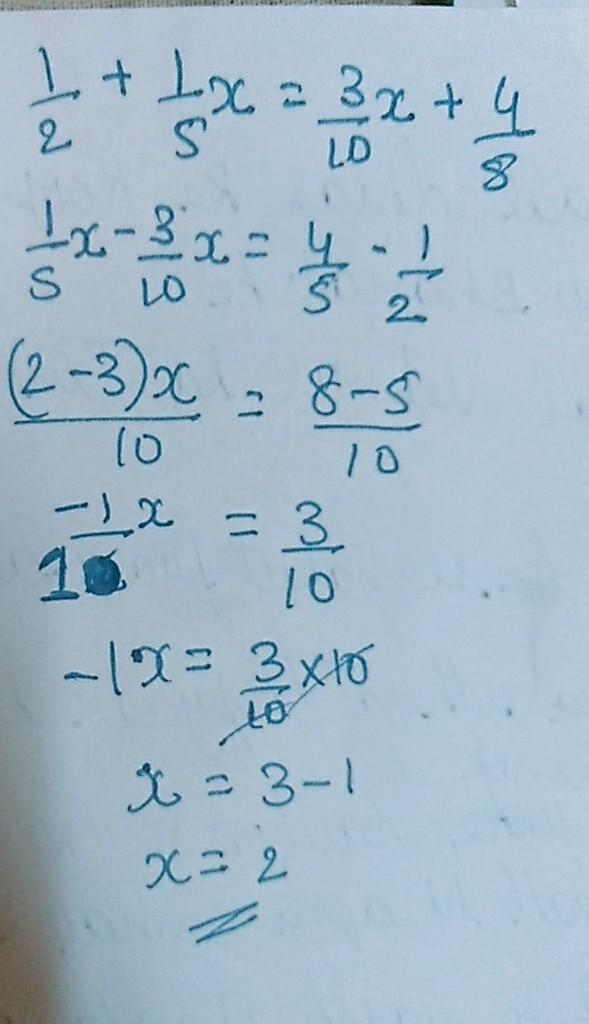 1/2 + 1/5x = 3/10x + 4/8
1/5x - 3/10x = 4/5 - 1/2
(2-3)x/10 = 8-5/10
-1x/10 = 3/10
-1x = 3/10 x 10
x = 3-1
x = 2